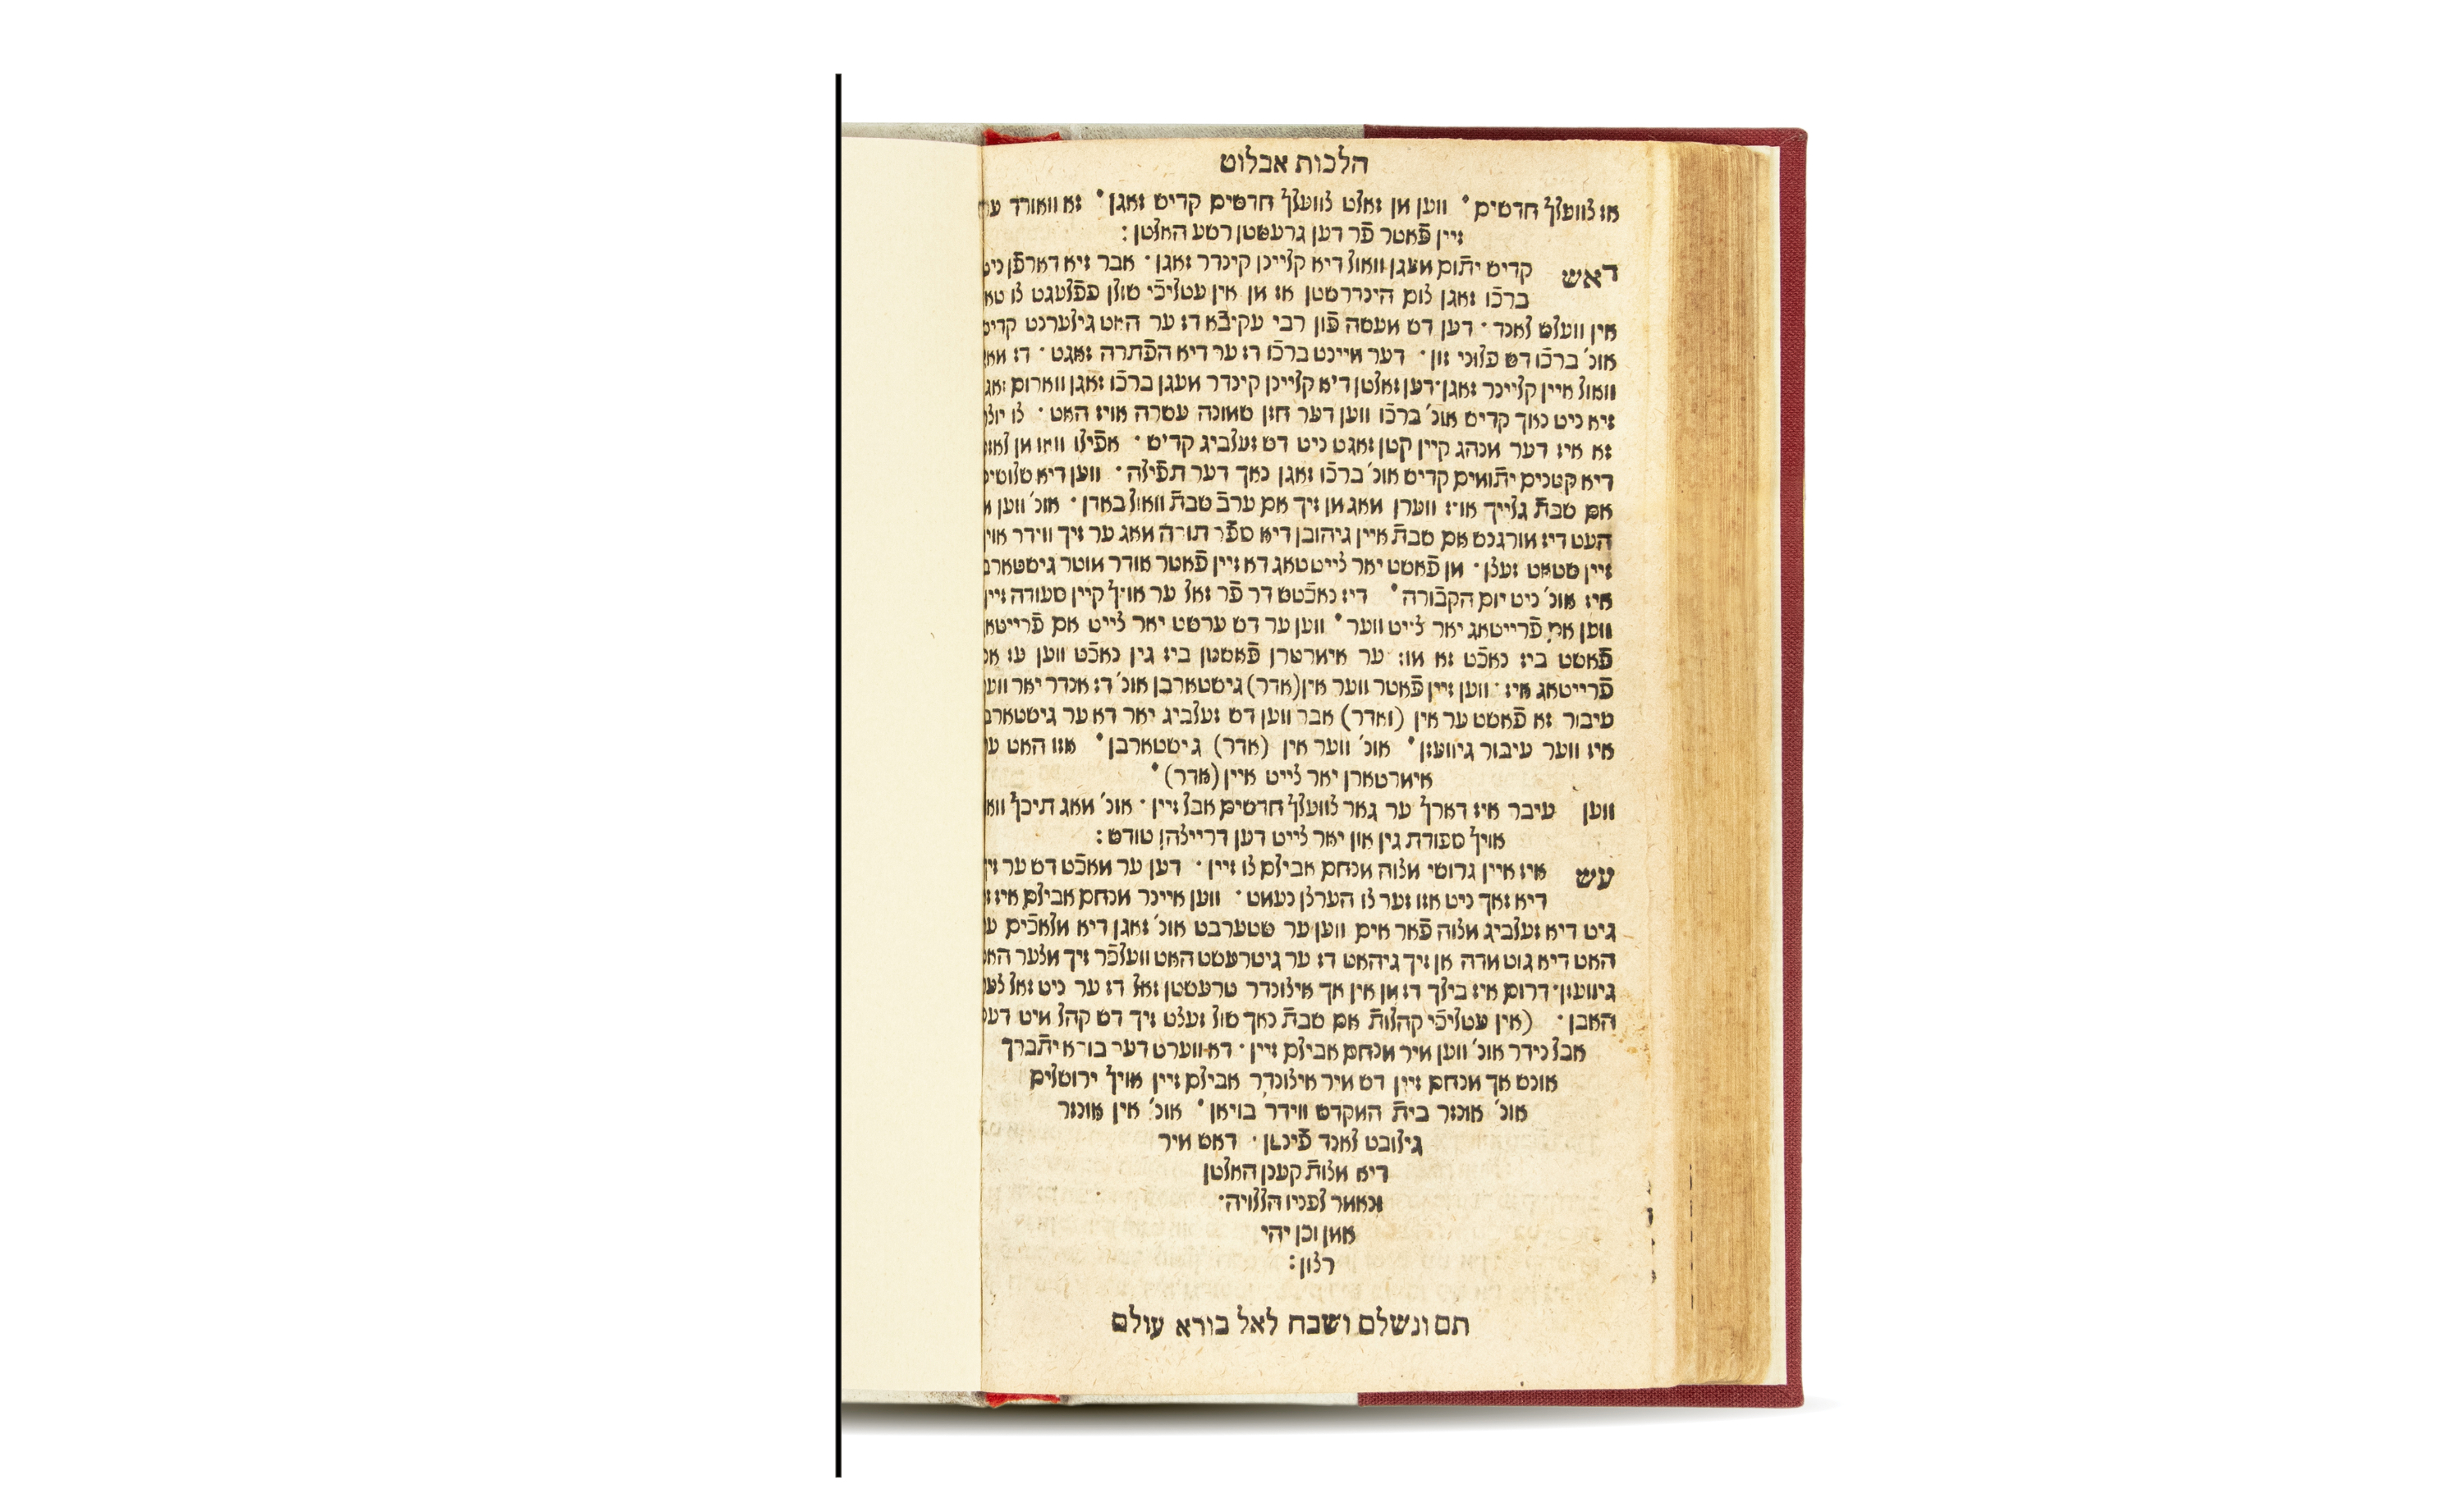 הלכות אבלות
אז צוועלף חדשים׃ ווען מן זאלט צוועלף חדשים קדיש זאגן׃ זא ווארד
זיין פֿאטר פֿר דען גרעשטן רשע האלטן:
דאש קדיש יתום מעגן וואול דיא קליינן קינדר זאגן· אבר זיא דארפֿן
ברכֿו זאגן צום הינדרשטן אז מן אין עטליכֿי שולן פפֿלעגט צו
אין וועלש לאנד· דען דש מעשה פֿון רבי עקיבֿא דז ער האט גילערנט
אונ׳ ברכֿו דש פלוני זון· דער מיינט ברכֿו דז ער דיא הפֿתרה זאגט· דז
וואול איין קליינר זאגן·דען זאלטן דיא קליינן קינדר מעגן ברכֿו זאגן ווארום
זיא ניט נאך קדיש אונ׳ ברכֿו ווען דער חזן שמונה עשרה אויז האט· צו
זא איז דער מנהג קיין קטן זאגט ניט דש זעלביג קדיש· אפֿילו וואו מן
דיא קטנים יתֿומים קדיש אונ׳ ברכֿו זאגן נאך דער תפֿילה· ווען דיא
אם שבתֿ גלייך אויז ווערן מאג מן זיך אם ערבֿ שבתֿ וואול באדן· אונ׳ ווען
העט דיז מורגנש אם שבתֿ איין גיהובן דיא ספֿר תורה מאג ער זיך ווידר
זיין שטאט זעצן· מן פֿאשט יאר צייט טאג דא זיין פֿאטר אודר מוטר
איז אונ׳ ניט יום הקבֿורה׃ דיז נאכֿטש דר פֿר זאל ער אויף קיין סעודה זיין
ווען אם פֿרייטאג יאר צייט ווער׃ ווען ער דש ערשט יאר צייט אם
פֿאשט ביז נאכֿט זא מוז ער אימרטרן פֿאשטן ביז גין נאכֿט ווען עז
פֿרייטאג איז· ווען זיין פֿאטר ווער אין(אדר) גישטארבן אונ׳ דז אנדר יאר
עיבור זא פֿאשט ער אין (ואדר) אבר ווען דש זעלביג יאר דא ער
איז ווער עיבור גיוועזן׃ אונ׳ ווער אין (אדר) גישטארבן׃ אזו האט
אימרטארן יאר צייט איין (אדר)׃
ווען עיבר איז דארף ער גאר צוועלף חדשים אבל זיין· אונ׳ מאג תיכף
אויף סעודת גין און יאר צייט דען דרייצהן טודש:
עש איז איין גרושי מצוה מנחם אבילים צו זיין· דען ער מאכֿט דש ער
דיא זאך ניט אזו זער צו הערצן נעמט· ווען איינר מנחם אבילים איז
גיט דיא זעלביג מצוה פֿאר אים ווען ער שטערבט אונ׳ זאגן דיא מלאכֿים
האט דיא גוט מדה אן זיך גיהאט דז ער גיטרעשט האט וועלכֿר זיך מצער
גיוועזן·דרום איז בילך דז מן אין אך איצונדר טרעשטן זאל דז ער ניט זאל
האבן· (אין עטליכֿי קהלותֿ אם שבתֿ נאך שול זעצט זיך דש קהל מיט
אבל נידר אונ׳ ווען מיר מנחם אבילים זיין· דא ווערט דער בורא יתֿברך
אונש אך מנחם זיין דש מיר איצונדר אבילים זיין אויף ירושלים
אונ׳ אונזר ביתֿ המקדש ווידר בויאן׃ אונ׳ אין אונזר
גילובט לאנד פֿירן· דאש מיר
דיא מצותֿ קענן האלטן
ונאמר לפניו הללויה·
אמן וכן יהי
רצון:
תם ונשלם ושבח לאל בורא עולם